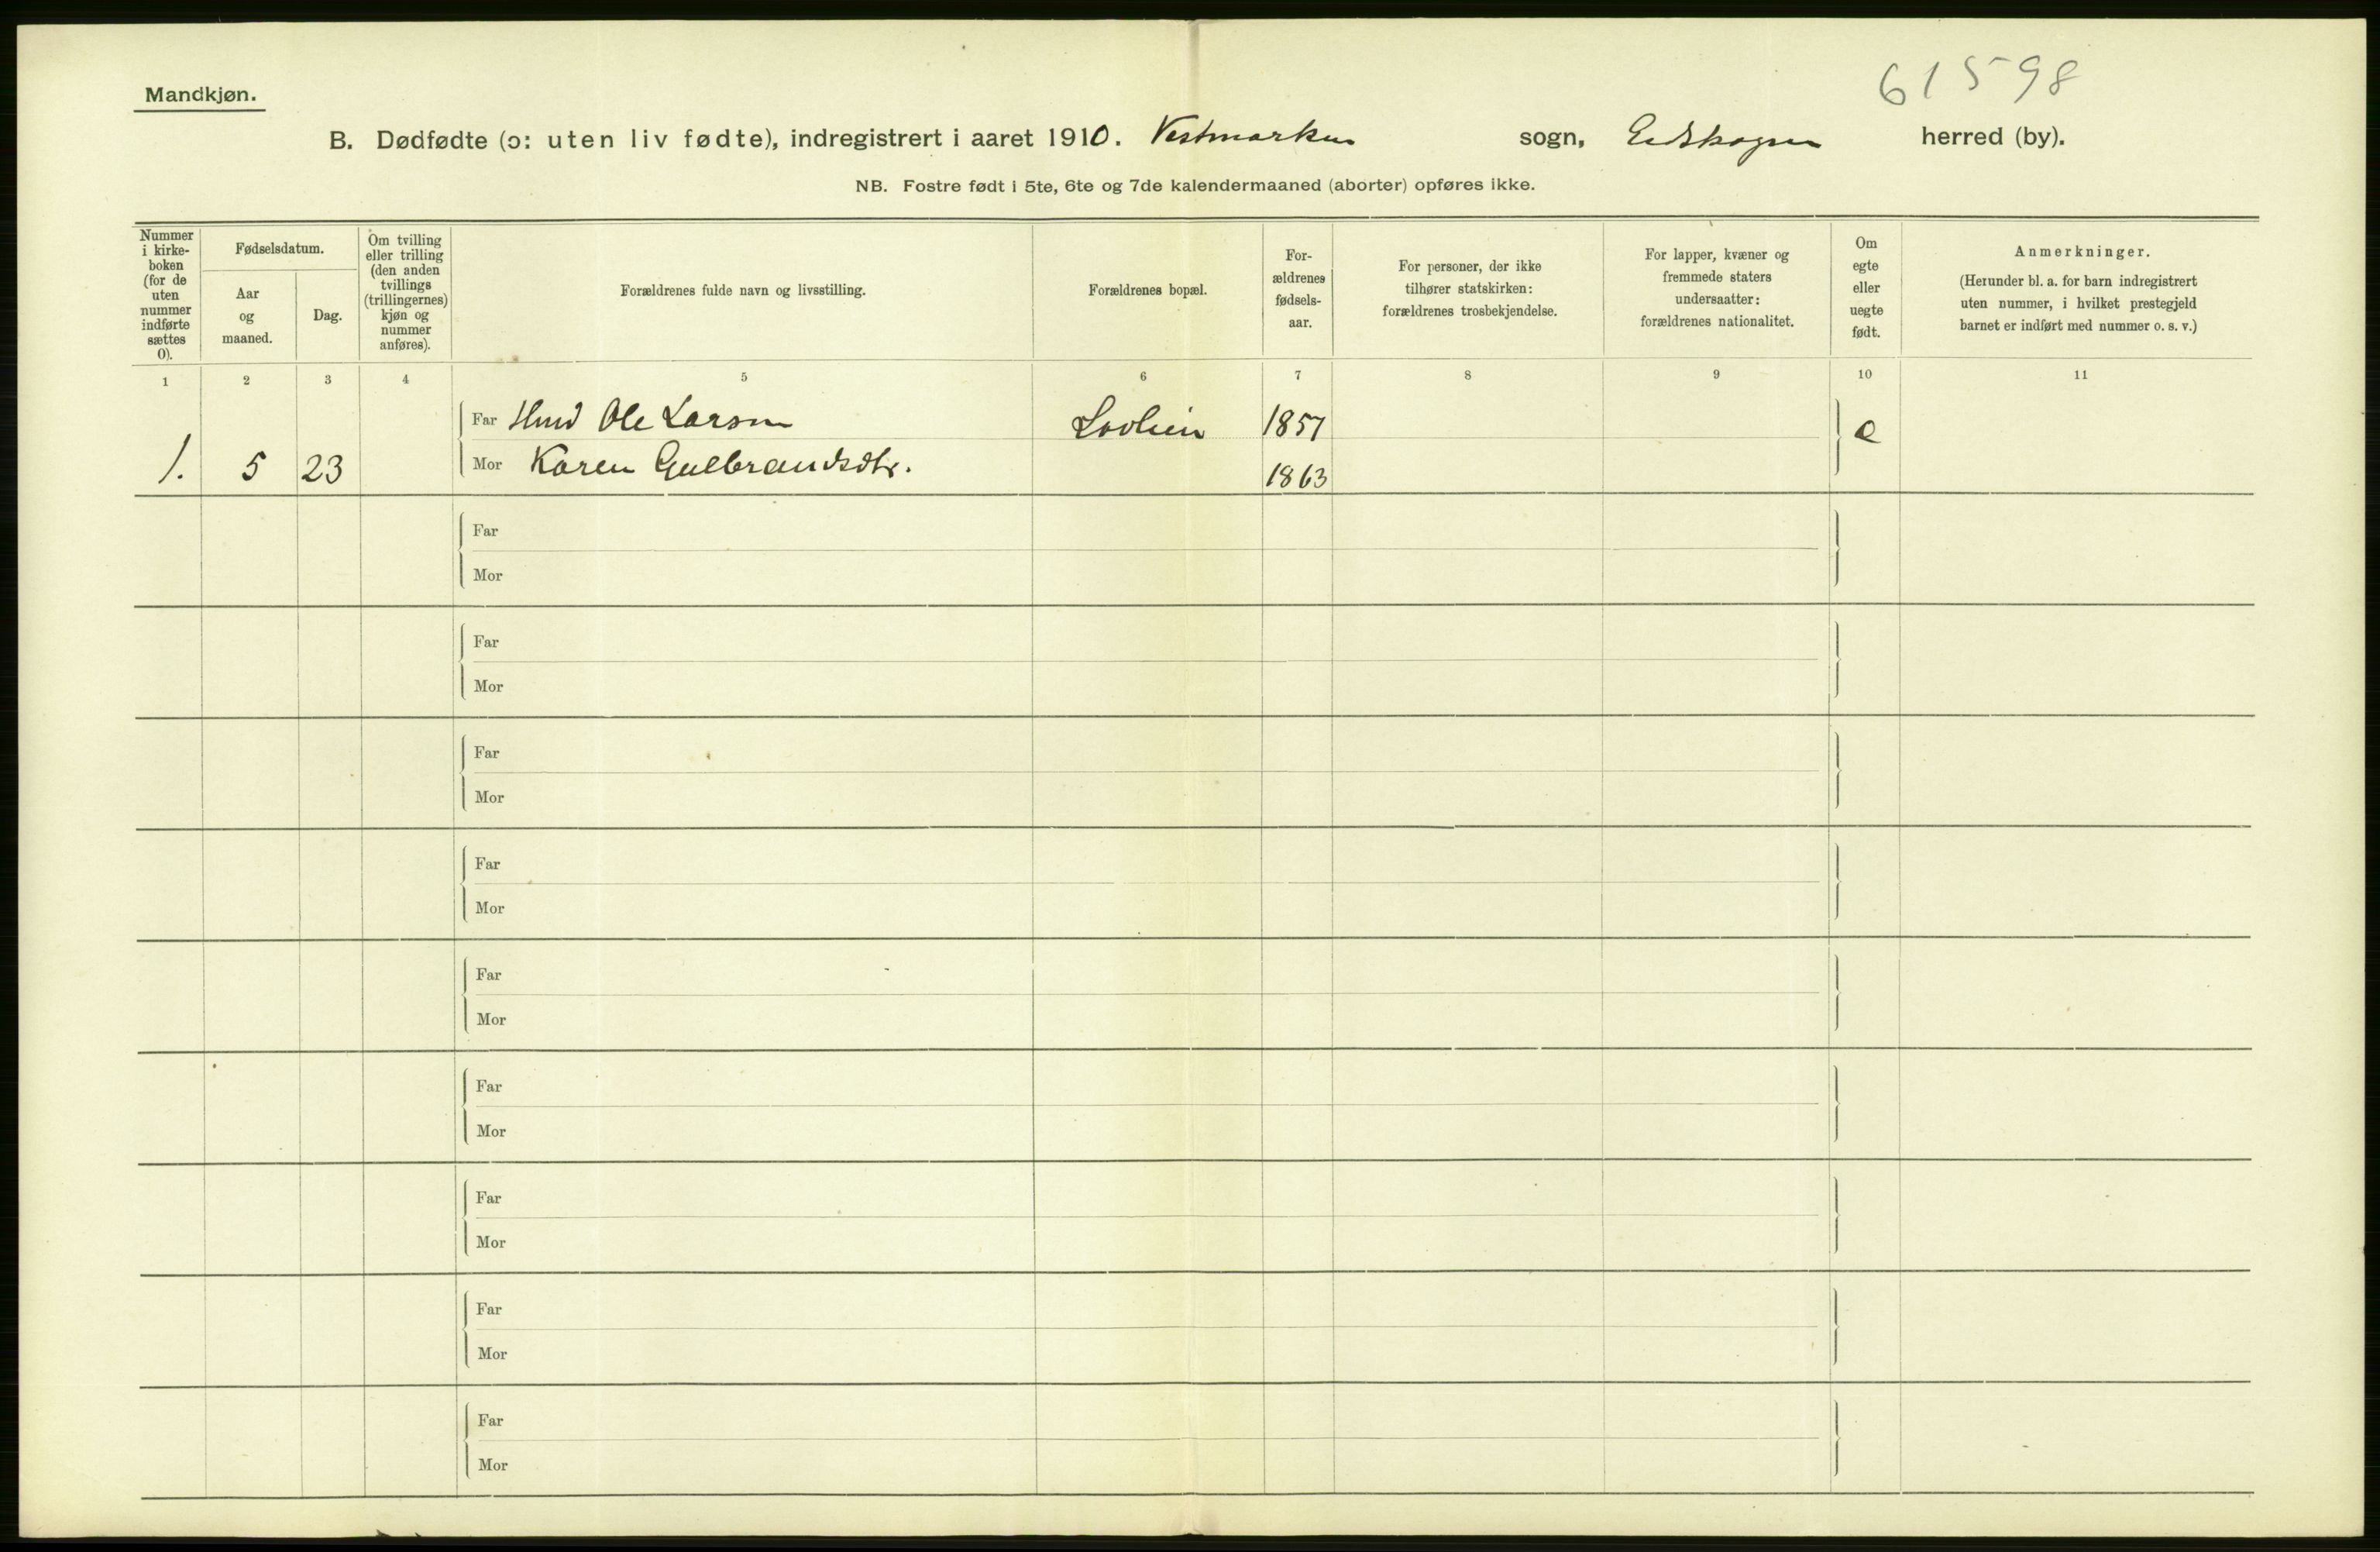 61598
Mandkjøn.
B. Dødfødte (ɔ: uten liv fødte), indregistrert i aaret 1910. Vestmarken sogn, Eidskogen herred (by).
NB. Fostre født i 5te, 6te og 7de kalendermaaned (aborter) opføres ikke.
Nummer
i kirke-
boken
(for de
uten
nummer
indførte
sættes
0).
Fødselsdatum.
Aar
og
maaned.
Dag.
Om tvilling
eller trilling
(den anden
tvillings
(trillingernes)
kjøn og
nummer
anføres).
Forældrenes fulde navn og livsstilling.
Forældrenes bopæl.
For-
ældrenes
fødsels-
aar.
For personer, der ikke
tilhører statskirken:
forældrenes trosbekjendelse.
For lapper, kvæner og
fremmede staters
undersaatter:
forældrenes nationalitet.
Om
egte
eller
uegte
født.
Anmerkninger.
(Herunder bl. a. for barn indregistrert
uten nummer, i hvilket prestegjeld
barnet er indført med nummer o. s. v.)
1 2 3 4 5 6 7 8 9 10 11
Far Hmd Ole Larsen 1857 e
1. 5 23 Mor Karen Gulbrandsdtr. 1863
Far
Mor
Far
Mor
Far
Mor
Far
Mor
Far
Mor
Far
Mor
Far
Mor
Far
Mor
Far
Mor